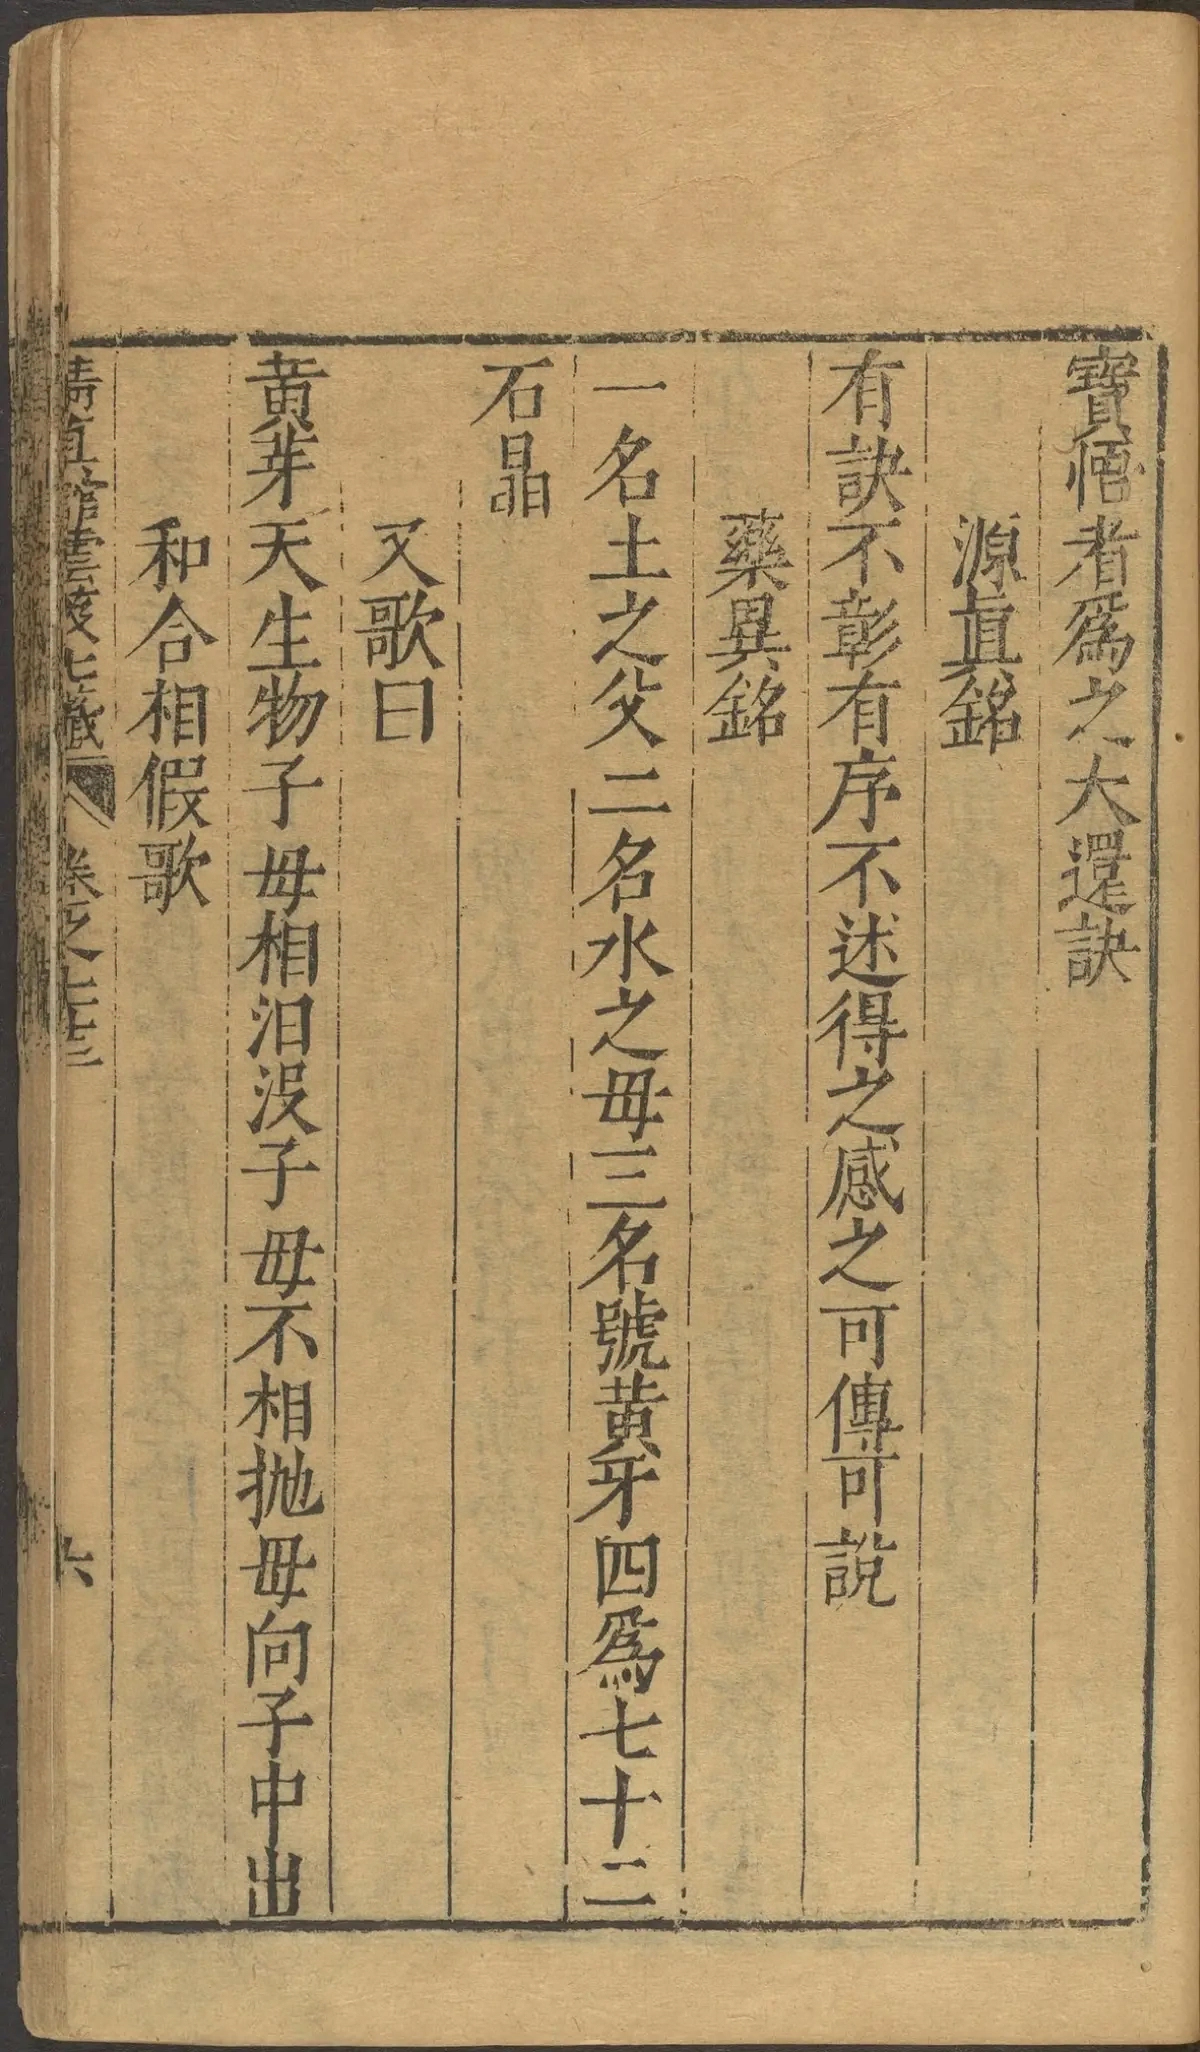 寶悟者爲之大還訣
源眞銘
有訣不彰有序不述得之感之可傳可說
藥異銘
一名土之父二名水之母三名號黃牙四爲七十二
石晶
又歌曰
黃芽天生物子母相汨沒子母不相拋母向子中出
和合相假歌
清真館雲笈七籤 卷之七十三 六